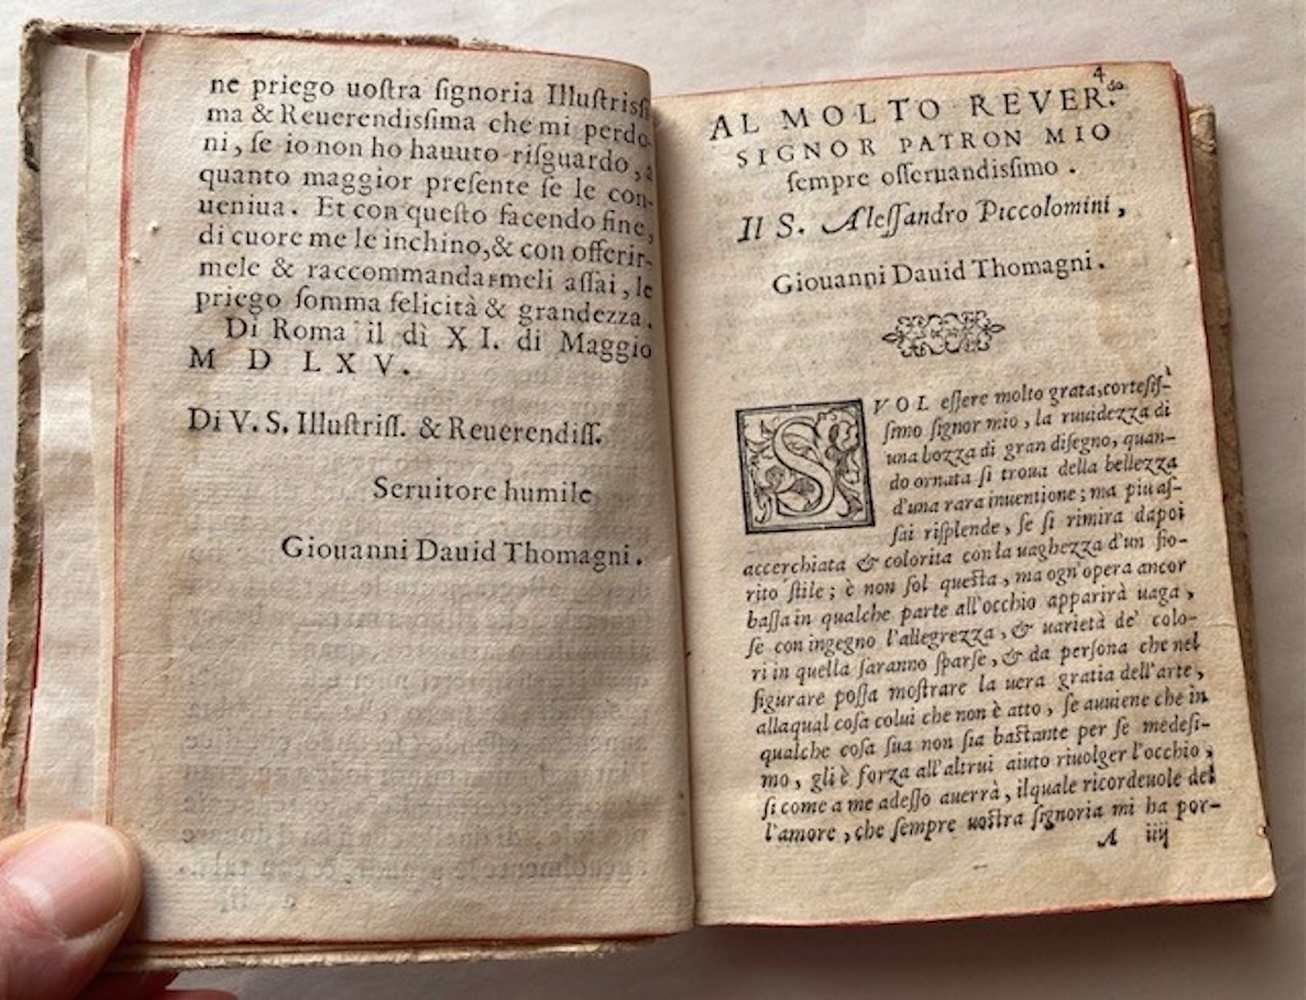 ne priego uoſtra ſignoria Illuſtriſſi
ma & Reuerendiſſima che mi perdo-
ni, ſe io non ho hauuto riſguardo, à
quanto maggior preſente ſe le con-
ueniua. Et con queſto facendo fine,
di cuore me le inchino, & con offerir-
mele & raccommandarmeli aſſai, le
priego ſomma felicità & grandezza.
Di Roma il dì XI. di Maggio
M D LXV.
Di V. S. Illuſtriſſ. & Reuerendiſſ.
Seruitore humile
Giouanni Dauid Thomagni.
4
AL MOLTO REVER.do
SIGNOR PATRON MIO
ſempre oſſeruandiſſimo.
Il S. Aleſſandro Piccolomini,
Giouanni Dauid Thomagni.
SVOL eſſere molto grata, corteſiſ-
ſimo ſignor mio, la ruuidezza di
una bozza di gran diſegno, quan-
do ornata ſi troua della bellezza
d'una rara inuentione; ma piu aſ-
ſai riſplende, ſe ſi rimira dapoi
accerchiata & colorita con la uaghezza d'un fio-
rito ſtile; è non ſol queſta, ma ogn'opera ancor
baſſa in qualche parte all'occhio apparirà uaga,
ſe con ingegno l'allegrezza, & uarietà de' colo-
ri in quella ſaranno ſparſe, & da perſona che nel
figurare poſſa moſtrare la uera gratia dell'arte,
allaqual coſa colui che non è atto, ſe auuiene che in
qualche coſa ſua non ſia baſtante per ſe medeſi-
mo, gli è forza all'altrui aiuto riuolger l'occhio,
ſi come a me adeſſo auerrà, ilquale ricordeuole del
l'amore, che ſempre uoſtra ſignoria mi ha por-
A iiij